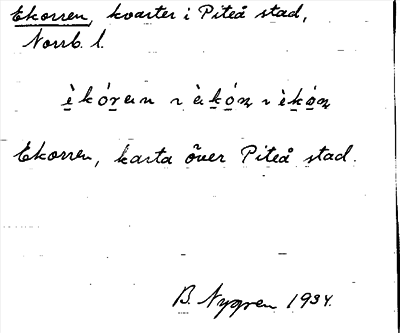 Ekorren, kvarter i Piteå stad,
Norrb. l.
Ekorren, karta över Piteå stad.
B. Nygren 1934.